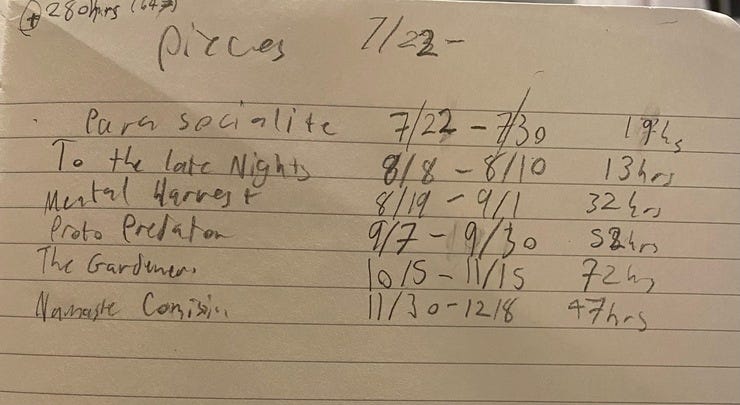 + 280hrs
pieces 7/22-
Parasocialite 7/22 - 7/30 19hs
To the late Nights 8/8 - 8/10 13hrs
Mental Harvest 8/19 - 9/1 32hrs
Proto Predator 9/7 - 9/30 hrs
The Gardener 10/5 - 11/15 72hs
Namaste 11/30-12/8 47hrs